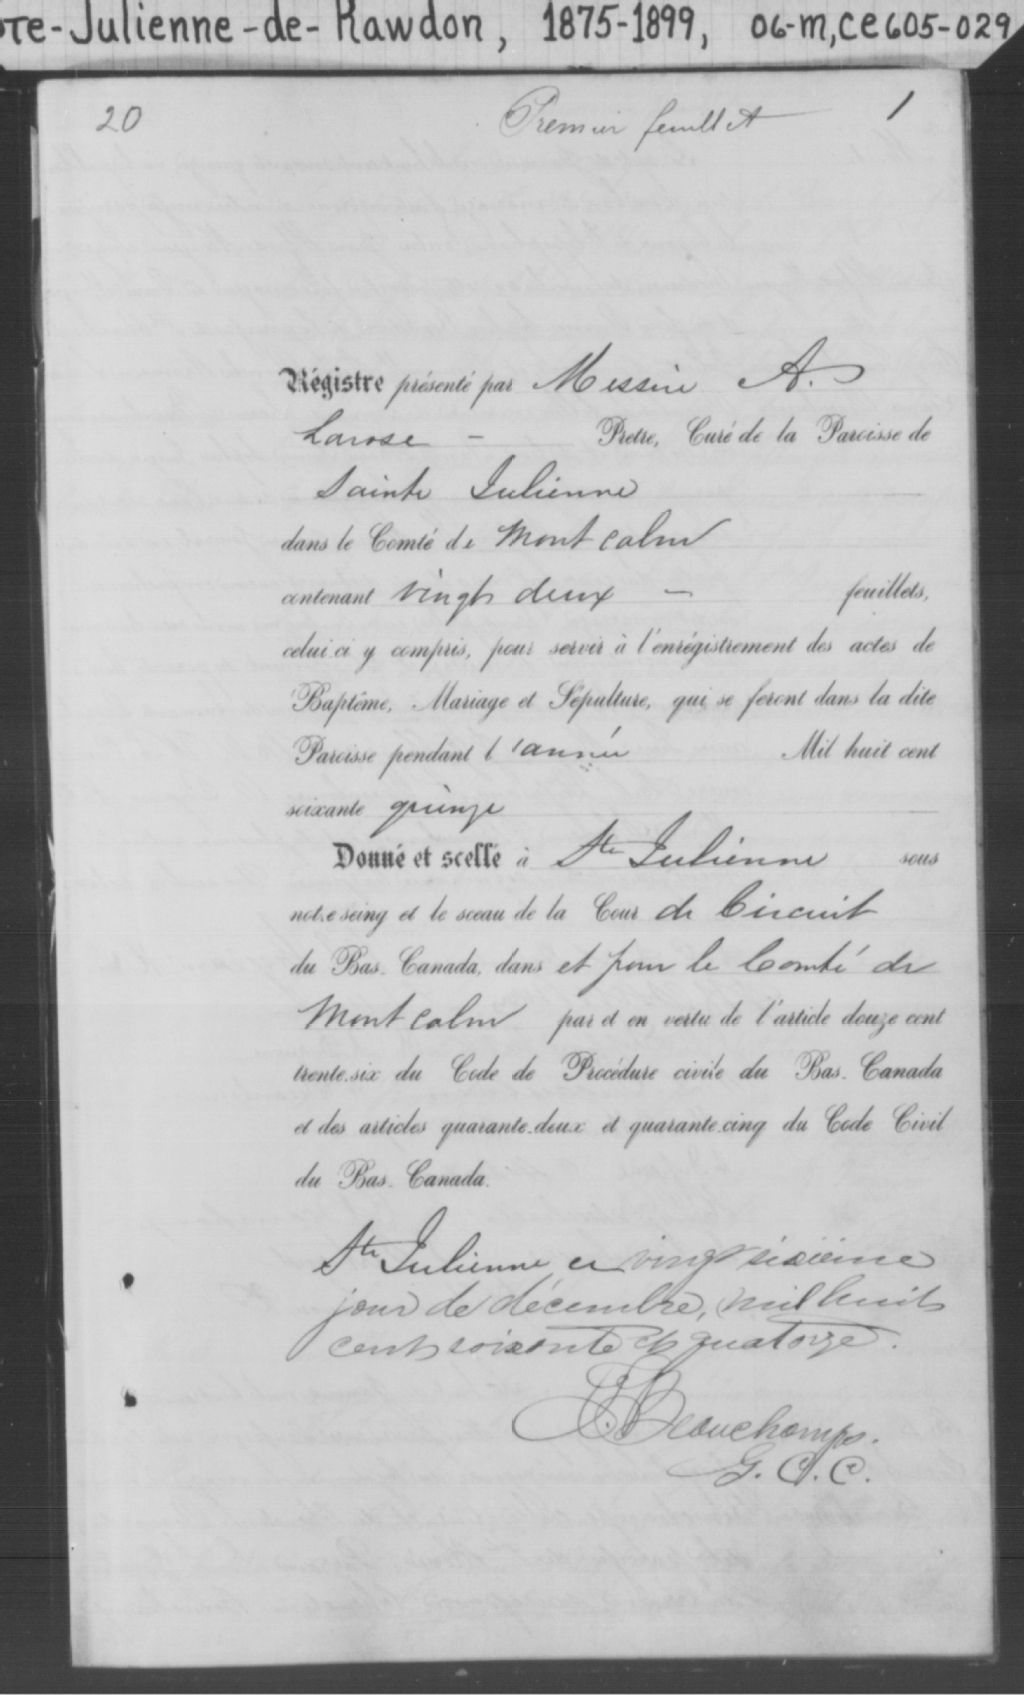 Ste-Julienne-de-Rawdon, 1875-1899, 06-M,CE605-029
20 Premier feuillet 1
Régistre présenté par Messire A.
Larose - Prêtre, Curé de la Paroisse de
Sainte Julienne
dans le Comté de Montcalm
contenant vingt deux - feuillets,
celui ci y compris, pour servir à l'enrégistrement des actes de
Baptême, Mariage et Sépulture, qui se feront dans la dite
Paroisse pendant l'année Mil huit cent
soixante quinze
Donné et scellé à Ste Julienne sous
notre seing et le sceau de la Cour de Circuit
du Bas-Canada, dans et pour le Comté de
Montcalm par et en vertu de l'article douze cent
trente-six du Code de Procédure civile du Bas-Canada
et des articles quarante-deux et quarante-cinq du Code Civil
du Bas-Canada.
Ste Julienne ce vingt sixième
jour de décembre, mil huit
cent soixante et quatorze.
Beauchamps.
G. C. C.